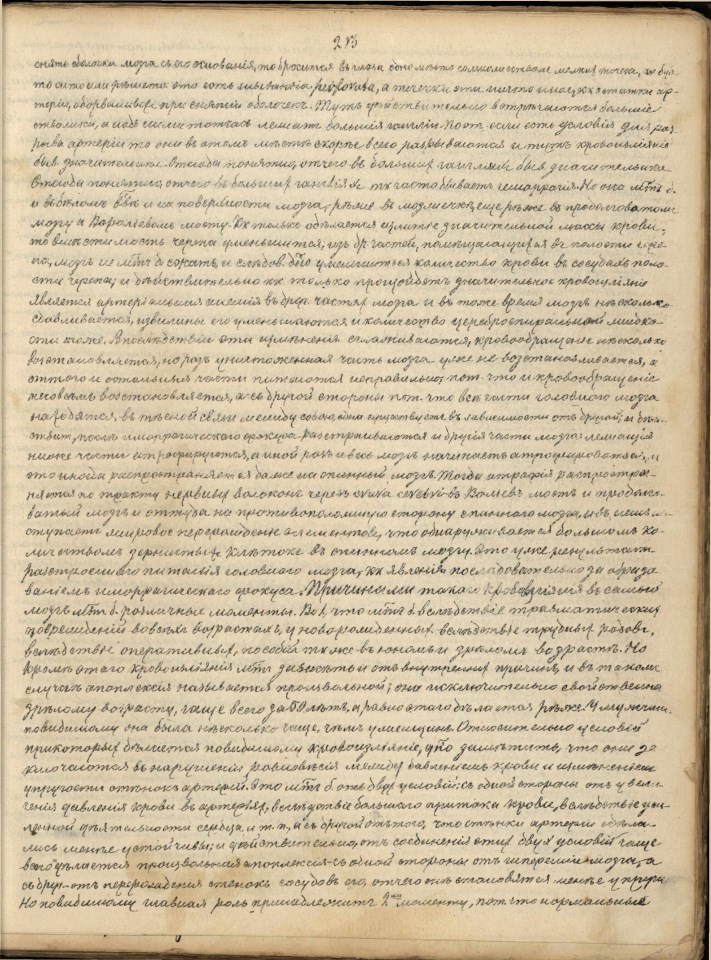 213
снять оболочки мозга съ его основанія, то бросится въ глаза одно мѣсто со множествомъ мелкихъ точекъ, кк буд
то сито или рѣшето это есть называемая, а точки эти ничто иное, кк остатки ар
теріи, оборвавшіеся при снятіи оболочекъ. Тутъ дѣйствительно встрѣчаются большіе
стволики, а надъ ними тотчасъ лежатъ большія гангліи. Поэт. если есть условія для раз
рыва артеріи то они въ этомъ мѣстѣ скорѣе всего разрываются и тутъ кровоизліяніе
быв. значительное. Отсюда понятно, отчего въ большихъ гангліяхъ быв. значительная
Отсюда понятно, отчего въ большихъ гангліяхъ такъ часто бываетъ гемаррагія. Но она м. б.
и въ бѣломъ в. и на поверхности мозга, рѣже въ мозжечкѣ, еще рѣже въ продолговатомъ
мозгу и Вароліевомъ мосту. Кк только дѣлается излитіе значительной массы крови,
то вмѣстимость черепа уменьшится, изъ др. частей, помѣщающихся въ полости чере
па, мозгъ не м. б. сжатъ, и слѣдов. уменьшиться количество крови въ сосудахъ поло
сти черепа; и дѣйствительно кк только произойдетъ значительное кровоизліяніе
является артеріальная анемія въ друг. частяхъ мозга и въ тоже время мозгъ нѣсколько
сдавливается, извилины его уменьшаются и количество цереброспинальной жидко
сти тоже. Впослѣдствіи эти измѣненія сглаживаются, кровообращеніе нѣсколько
возстановляется, но разъ уничтоженная часть мозга уже не возстановливается, а
оттого и остальныя части питаются неправильно, пот. что и кровообращеніе
не совсѣмъ возстановляется, а съ другой стороны пот. что всѣ части головного мозга
находятся въ тѣсной связи между собою, одна существуетъ въ зависимости отъ другой; и дѣй
ствит., послѣ иморрагическаго фокуса разстраиваются и другія части мозга: лежащія
ниже части атрофируются, а иной разъ и весь мозгъ начинаетъ атрофироваться, и
это иногда распространяется даже на спинной мозгъ. Тогда атрофія распростра
няется по тракту нервныхъ волоконъ черезъ въ Вароліевъ мостъ и продолго
ватый мозгъ и оттуда на противоположную сторону спинного мозга, и въ немъ на
ступаетъ жировое перерожденіе элементовъ, что обнаруживается большимъ ко
личествомъ зернистыхъ клѣтокъ въ спинномъ мозгу. Это уже результатъ
разстроеннаго питанія головного мозга, кк явленія послѣдовательно за образо
ваніемъ иморрагическаго фокуса. Причинами такого кровоизліянія въ самый
мозгъ м. б. различные моменты. Во 1, что м. б. вслѣдствіе травматическихъ
поврежденій во всѣхъ возрастахъ, у новорожденныхъ вслѣдствіе трудныхъ родовъ,
вслѣдствіе оперативныхъ пособій также въ юномъ и зрѣломъ возрастѣ. Но
кромѣ этаго кровоизліянія м. зависѣть и отъ внутреннихъ причинъ, и въ такомъ
случаѣ апоплексія называется произвольной; она исключительно свойственна
зрѣлому возрасту, чаще всего за 50 лѣтъ, а равно этаго бываетъ рѣже. У мужчинъ
повидимому она была нѣсколько чаще, чѣмъ у женщинъ. Относительно условій
при которыхъ дѣлается повидимому кровоизліяніе, замѣтить, что они за
ключаются въ нарушеніи равновѣсія между давленіемъ крови и измѣненіемъ
упругости стѣнокъ артерій. Это м. б. отъ двухъ условій: съ одной стороны отъ увели
ченія давленія крови въ артеріяхъ, вслѣдствіе большаго притока крови, вслѣдствіе уси
ленной дѣятельности сердца и т. п., а съ другой отъ того, что стѣнки артерій сдѣла
лись менѣе устойчивы; и дѣйствительно, отъ соединенія этихъ двухъ условій чаще
всего дѣлается произвольная апоплексія: съ одной стороны отъ гипереміи мозга, а
съ друг. отъ перерожденія стѣнокъ сосудовъ его, отчего онѣ становятся менѣе упруги.
Но повидимому главная роль принадлежитъ 2му моменту, пот. что нормальные